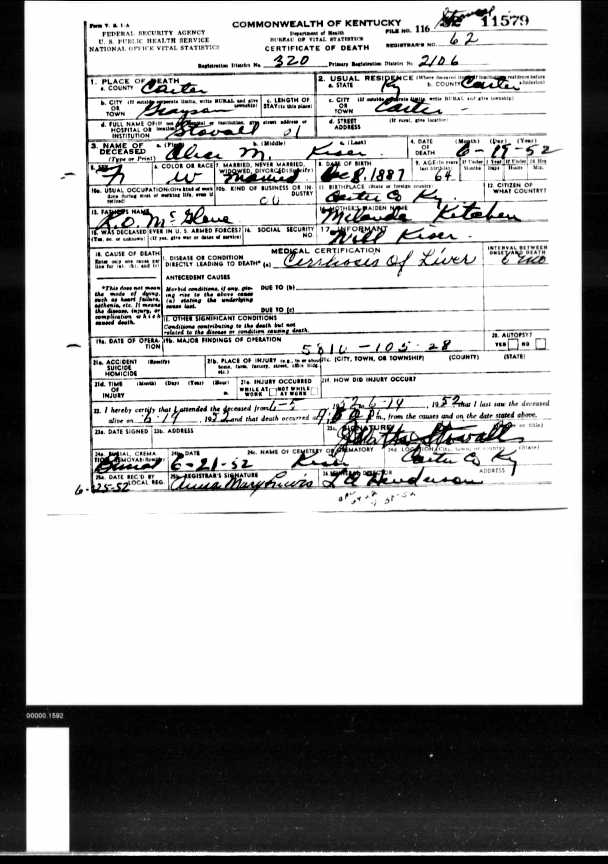 Form V. S. 1 A
FEDERAL SECURITY AGENCY
U. S. PUBLIC HEALTH SERVICE
NATIONAL OFFICE VITAL STATISTICS
COMMONWEALTH OF KENTUCKY
Department of Health
BUREAU OF VITAL STATISTICS
CERTIFICATE OF DEATH
FILE NO. 116 52 11579
Stovall
REGISTRAR'S NO. 62
Registration District No. 320 Primary Registration District No. 2106
1. PLACE OF DEATH
a. COUNTY Carter
2. USUAL RESIDENCE (Where deceased lived. If institution: residence before admission)
a. STATE Ky b. COUNTY Carter
b. CITY (If outside corporate limits, write RURAL and give township) OR TOWN Grayson
c. LENGTH OF STAY (in this place)
c. CITY (If outside corporate limits, write RURAL and give township) OR TOWN Carter
d. FULL NAME OF (If not in hospital or institution, give street address or location) HOSPITAL OR INSTITUTION Stovall 01
d. STREET ADDRESS (If rural, give location)
3. NAME OF DECEASED (Type or Print)
a. (First) b. (Middle) c. (Last)
Alice M. Kiser
4. DATE OF DEATH (Month) (Day) (Year)
6-19-52
5. SEX F
6. COLOR OR RACE W
7. MARRIED, NEVER MARRIED, WIDOWED, DIVORCED (Specify) Married
8. DATE OF BIRTH Dec 8, 1887
9. AGE (In years last birthday) 64
If Under 1 Year Months Days
If Under 24 Hrs. Hours Min.
10a. USUAL OCCUPATION (Give kind of work done during most of working life, even if retired)
10b. KIND OF BUSINESS OR INDUSTRY
11. BIRTHPLACE (State or foreign country) Carter Co Ky
12. CITIZEN OF WHAT COUNTRY?
13. FATHER'S NAME
R. O. McGlone
14. MOTHER'S MAIDEN NAME
Milanda Kitchen
15. WAS DECEASED EVER IN U. S. ARMED FORCES? (Yes, no, or unknown) (If yes, give war or dates of service)
16. SOCIAL SECURITY NO.
17. INFORMANT
Will Kiser
18. CAUSE OF DEATH
Enter only one cause per line for (a), (b), and (c)
MEDICAL CERTIFICATION
INTERVAL BETWEEN ONSET AND DEATH
I. DISEASE OR CONDITION DIRECTLY LEADING TO DEATH* (a) Cirrhosis Of Liver
*This does not mean the mode of dying, such as heart failure, asthenia, etc. It means the disease, injury, or complication which caused death.
ANTECEDENT CAUSES
Morbid conditions, if any, giving rise to the above cause (a) stating the underlying cause last.
DUE TO (b)
DUE TO (c)
II. OTHER SIGNIFICANT CONDITIONS
Conditions contributing to the death but not related to the disease or condition causing death.
19a. DATE OF OPERATION
19b. MAJOR FINDINGS OF OPERATION
5810-105-28
20. AUTOPSY?
YES NO
21a. ACCIDENT SUICIDE HOMICIDE (Specify)
21b. PLACE OF INJURY (e.g., in or about home, farm, factory, street, office bldg., etc.)
21c. (CITY, TOWN, OR TOWNSHIP) (COUNTY) (STATE)
21d. TIME OF INJURY (Month) (Day) (Year) (Hour) m.
21e. INJURY OCCURRED
WHILE AT WORK NOT WHILE AT WORK
21f. HOW DID INJURY OCCUR?
22. I hereby certify that I attended the deceased from 6-5, 1952 to 6-19, 1952 that I last saw the deceased
alive on 6-19, 1952 and that death occurred at m., from the causes and on the date stated above.
23a. DATE SIGNED
23b. ADDRESS
23c. SIGNATURE (Degree or title)
Stovall
24a. BURIAL, CREMATION, REMOVAL (Specify)
Burial
24b. DATE
6-21-52
24c. NAME OF CEMETERY OR CREMATORY
Kiser
24d. LOCATION (City, town, or county) (State)
Carter Co Ky
25a. DATE REC'D BY LOCAL REG.
6-25-52
25b. REGISTRAR'S SIGNATURE
Anna Mary Lewis
26. FUNERAL DIRECTOR
Henderson
ADDRESS
00000.1592